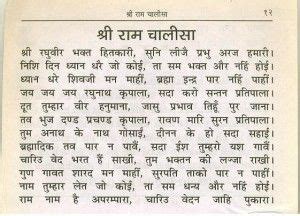 श्री राम चालीसा १२
श्री राम चालीसा
श्री रघुवीर भक्त हितकारी, सुनि लीजै प्रभु अरज हमारी।
निशि दिन ध्यान धरै जो कोई, ता सम भक्त और नहिं होई।
ध्यान धरे शिवजी मन माहीं, ब्रह्मा इन्द्र पार नहिं पाहीं।
जय जय जय रघुनाथ कृपाला, सदा करो सन्तन प्रतिपाला।
दूत तुम्हार वीर हनुमाना, जासु प्रभाव तिहूँ पुर जाना।
तव भुज दण्ड प्रचण्ड कृपाला, रावण मारि सुरन प्रतिपाला।
तुम अनाथ के नाथ गोसाई, दीनन के हो सदा सहाई।
ब्रह्मादिक तव पार न पावैं, सदा ईश तुम्हरो यश गावैं।
चारिउ वेद भरत हैं साखी, तुम भक्तन की लज्जा राखी।
गुण गावत शारद मन माहीं, सुरपति ताको पार न पाहीं।
नाम तुम्हार लेत जो कोई, ता सम धन्य और नहिं होई।
राम नाम है अपरम्पारा, चारिउ वेदन जाहि पुकारा।